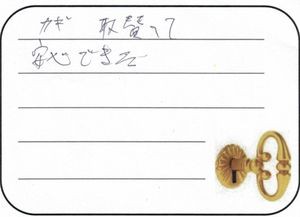 カギ 取替って
安心できた